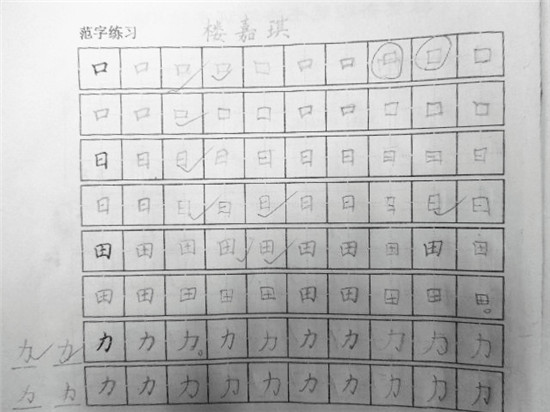 范字练习 楼嘉琪
口 口 口 口 口 口 口 口 口 口
口 口 口 口 口 口 口 口 口 口
日 日 日 日 日 日 日 日 日 日
日 日 日 日 日 日 日 日 日 日
田 田 田 田 田 田 田 田 田 田
田 田 田 田 田 田 田 田 田 田
力 力 力 力 力 力 力 力 力 力 力 力
力 力 力 力 力 力 力 力 力 力 力 力